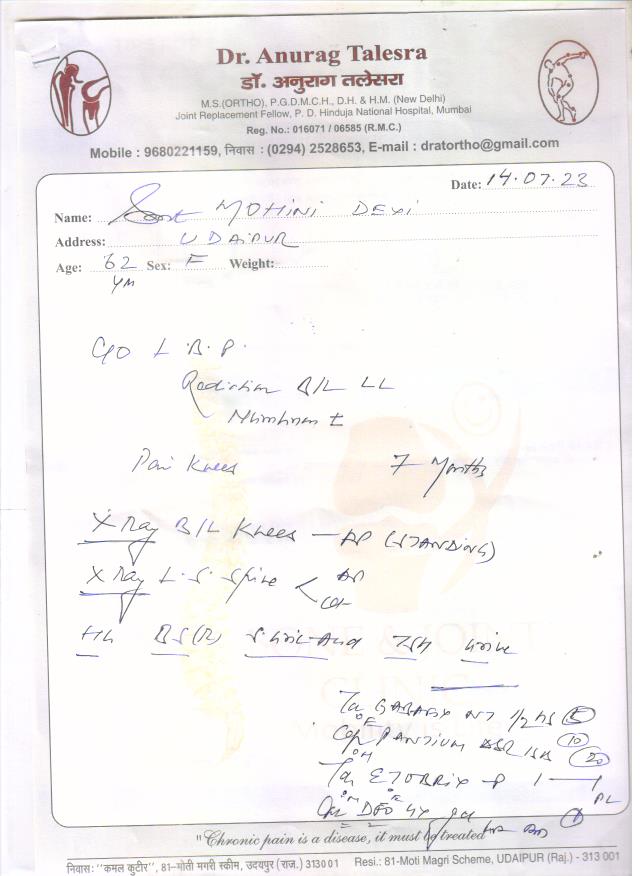 Dr. Anurag Talesra
डॉ. अनुराग तलेसरा
M.S.(ORTHO), P.G.D.M.C.H., D.H. & H.M. (New Delhi)
Joint Replacement Fellow, P. D. Hinduja National Hospital, Mumbai
Reg. No.: 016071 / 06585 (R.M.C.)
Mobile : 9680221159, निवास : (0294) 2528653, E-mail : dratortho@gmail.com
Date: 14.07.23
Name: Smt MOHINI DEVI
Address: UDAIPUR
Age: 62 Sex: F Weight:
C/O L.B.P.
Radiation B/L LL
Numbness +
Pain Knees 7 Months
X Ray B/L Knees — AP (STANDING)
X Ray L.S. Spine < AP
Lat
Hb BS(R) S. Uric Acid TSH Urine
Ta GABABIX NT 1/2 HS
Cap PANTIUM DSR
Ta ETOBRIX - P 1—1
"Chronic pain is a disease, it must be treated
निवास: "कमल कुटीर", 81-मोती मगरी स्कीम, उदयपुर (राज.) 313001 Resi.: 81-Moti Magri Scheme, UDAIPUR (Raj.) - 313 001